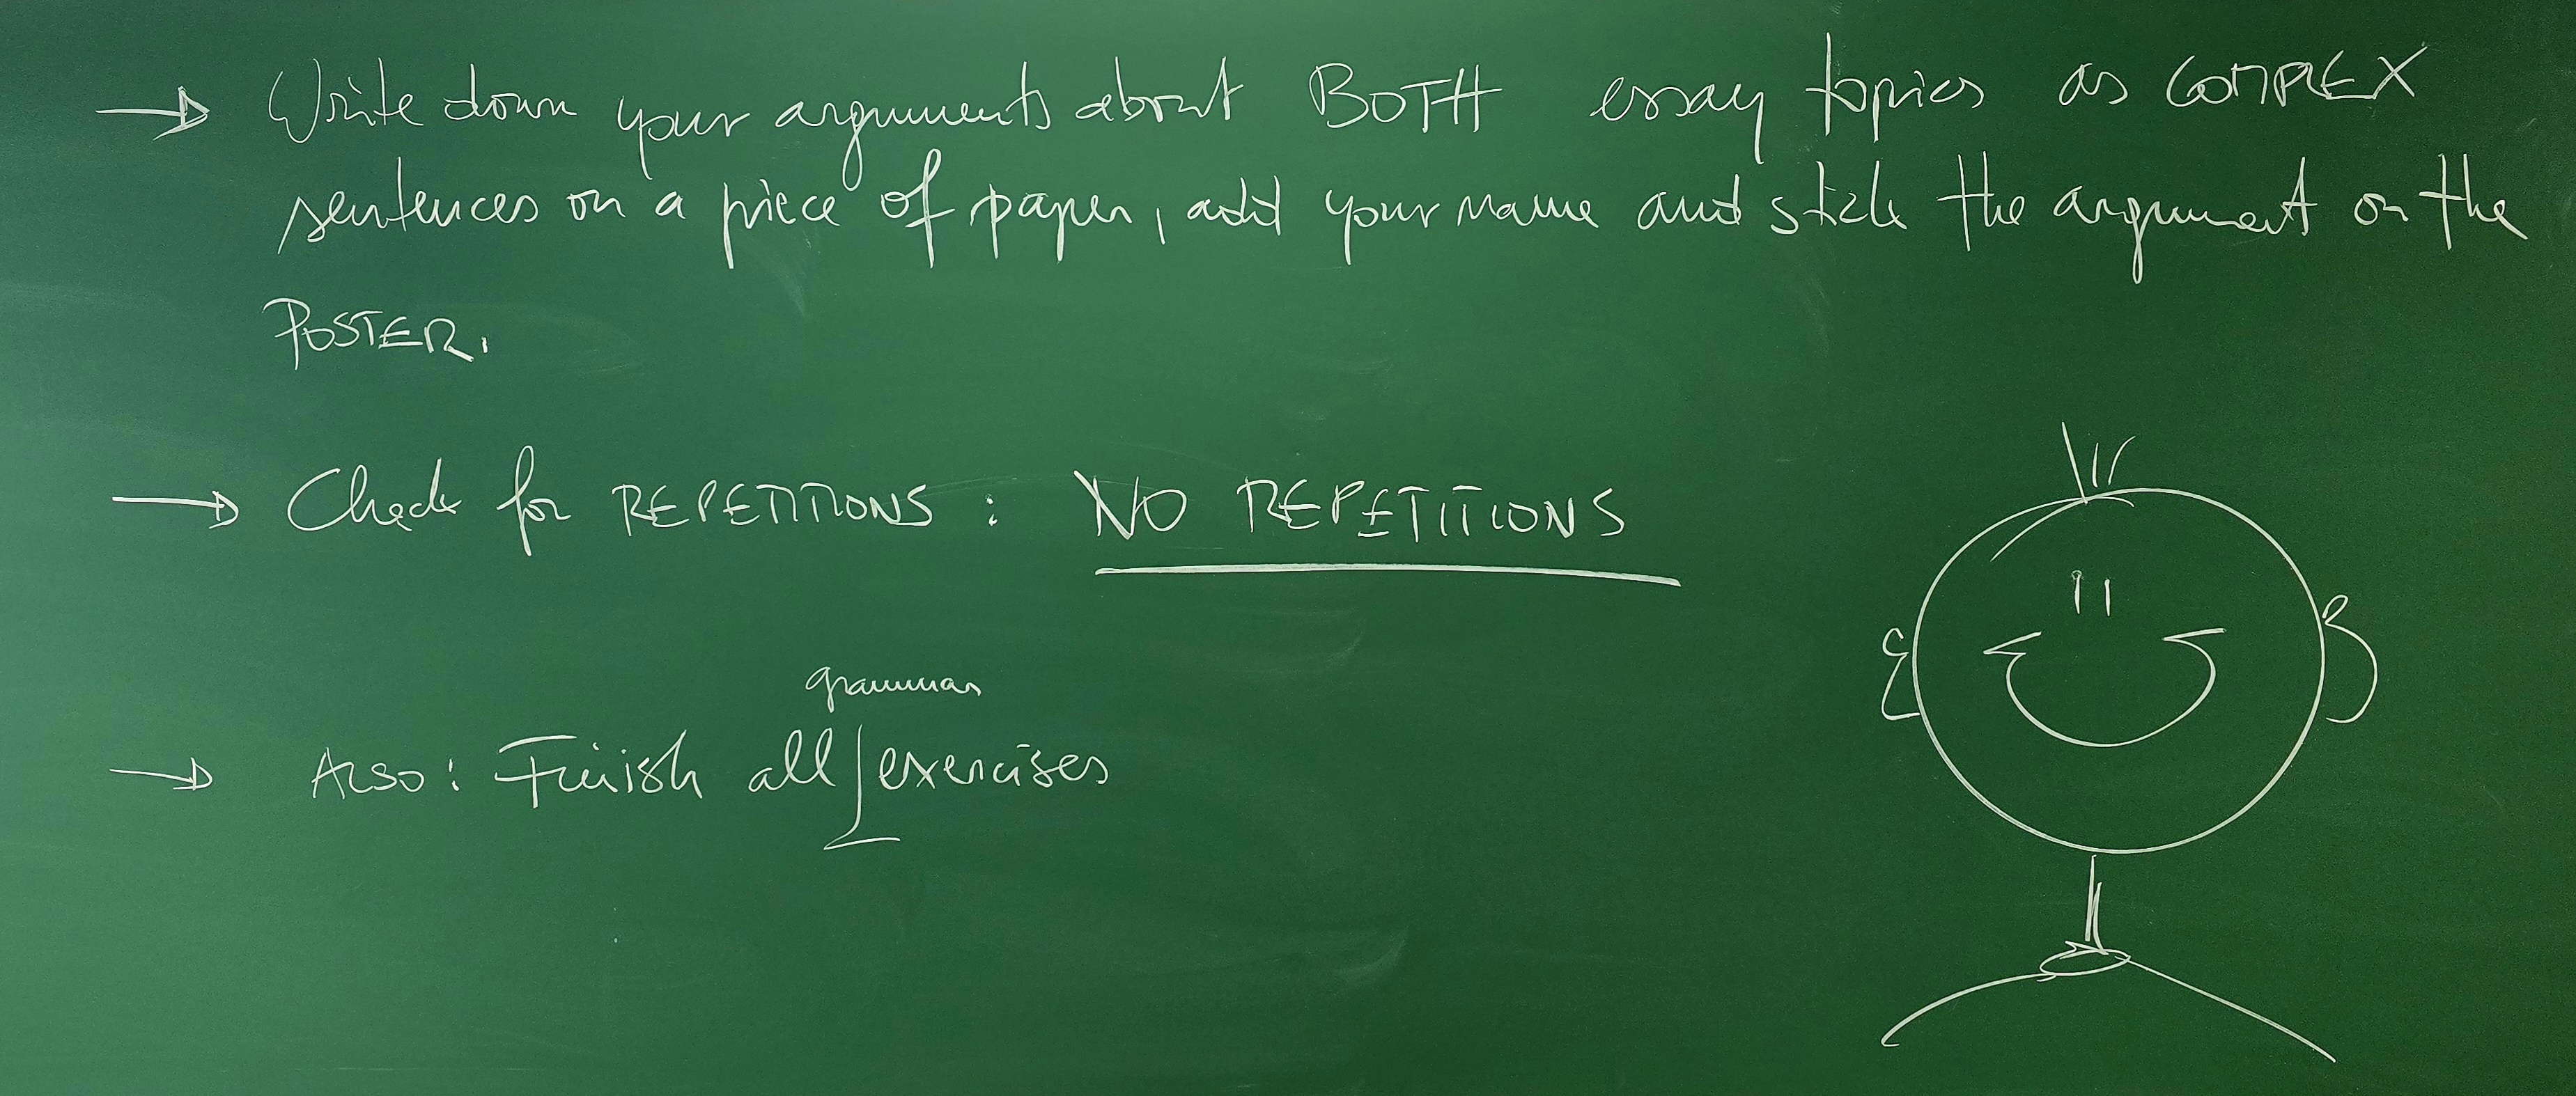 → Write down your arguments about BOTH essay topics as COMPLEX
sentences on a piece of paper, add your name and stick the argument on the
POSTER.
→ Check for REPETITIONS : NO REPETITIONS
grammar
→ ALSO: Finish all exercises